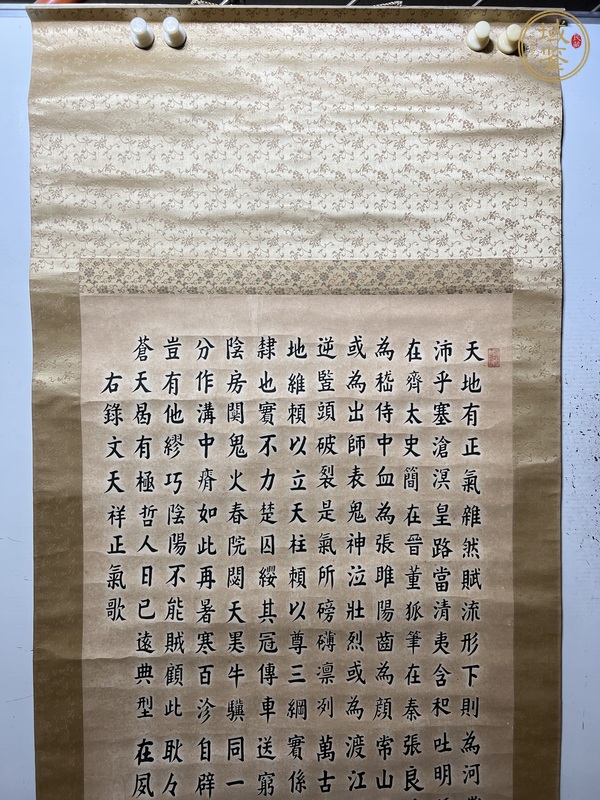 天地有正氣雜然賦流形下則為河
沛乎塞滄溟皇路當清夷含和吐明
在齊太史簡在晉董狐筆在秦張良
為嵇侍中血為張睢陽齒為顏常山
或為出師表鬼神泣壯烈或為渡江
逆豎頭破裂是氣所磅礴凛冽萬古
地維賴以立天柱賴以尊三綱實係
隸也實不力楚囚纓其冠傳車送窮
陰房闃鬼火春院閟天黑牛驥同一
分作溝中瘠如此再暑寒百沴自辟
豈有他繆巧陰陽不能賊顧此耿々
蒼天曷有極哲人日已遠典型在夙
右錄文天祥正氣歌
域鉴